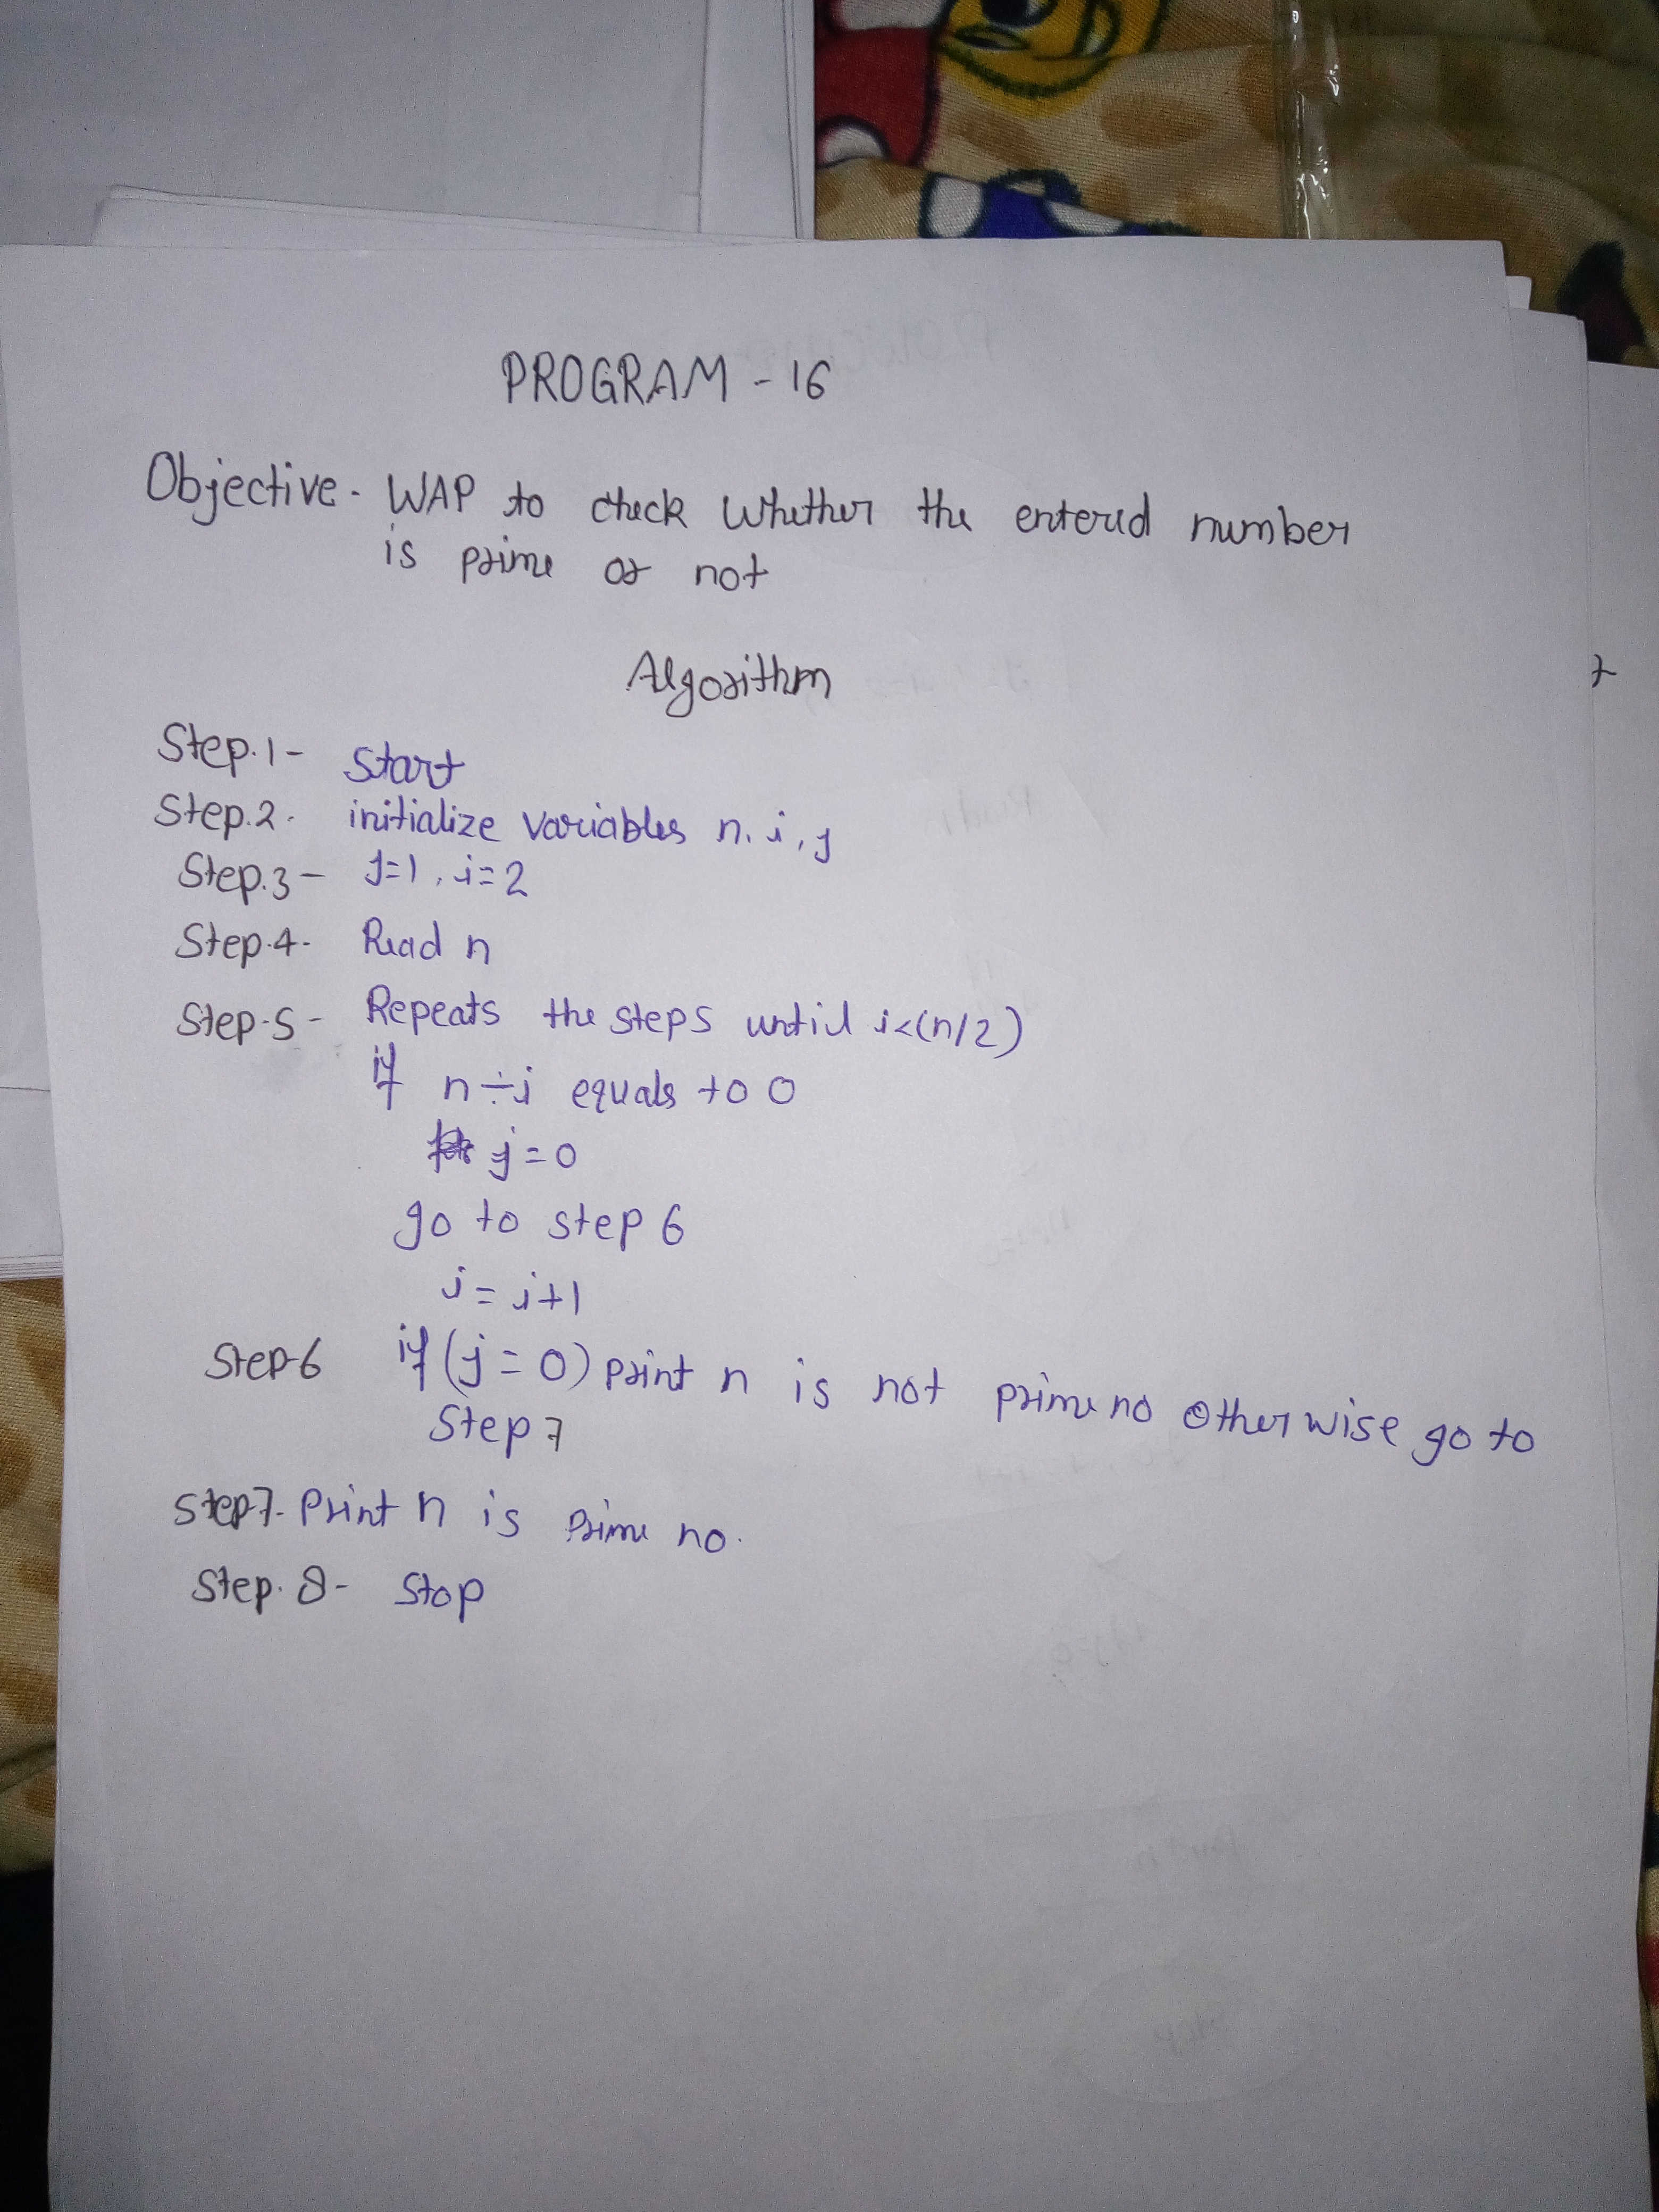 PROGRAM - 16
Objective - WAP to check whether the entered number
is prime or not
Algorithm
Step.1- Start
Step.2. initialize variables n, i, j
Step.3- j=1, i=2
Step.4- Read n
Step-5- Repeats the steps until i<(n/2)
if n÷i equals to 0
j=0
go to step 6
i = i+1
Step-6 if (j=0) print n is not prime no otherwise go to
Step 7
Step7. Print n is prime no.
Step. 8- Stop